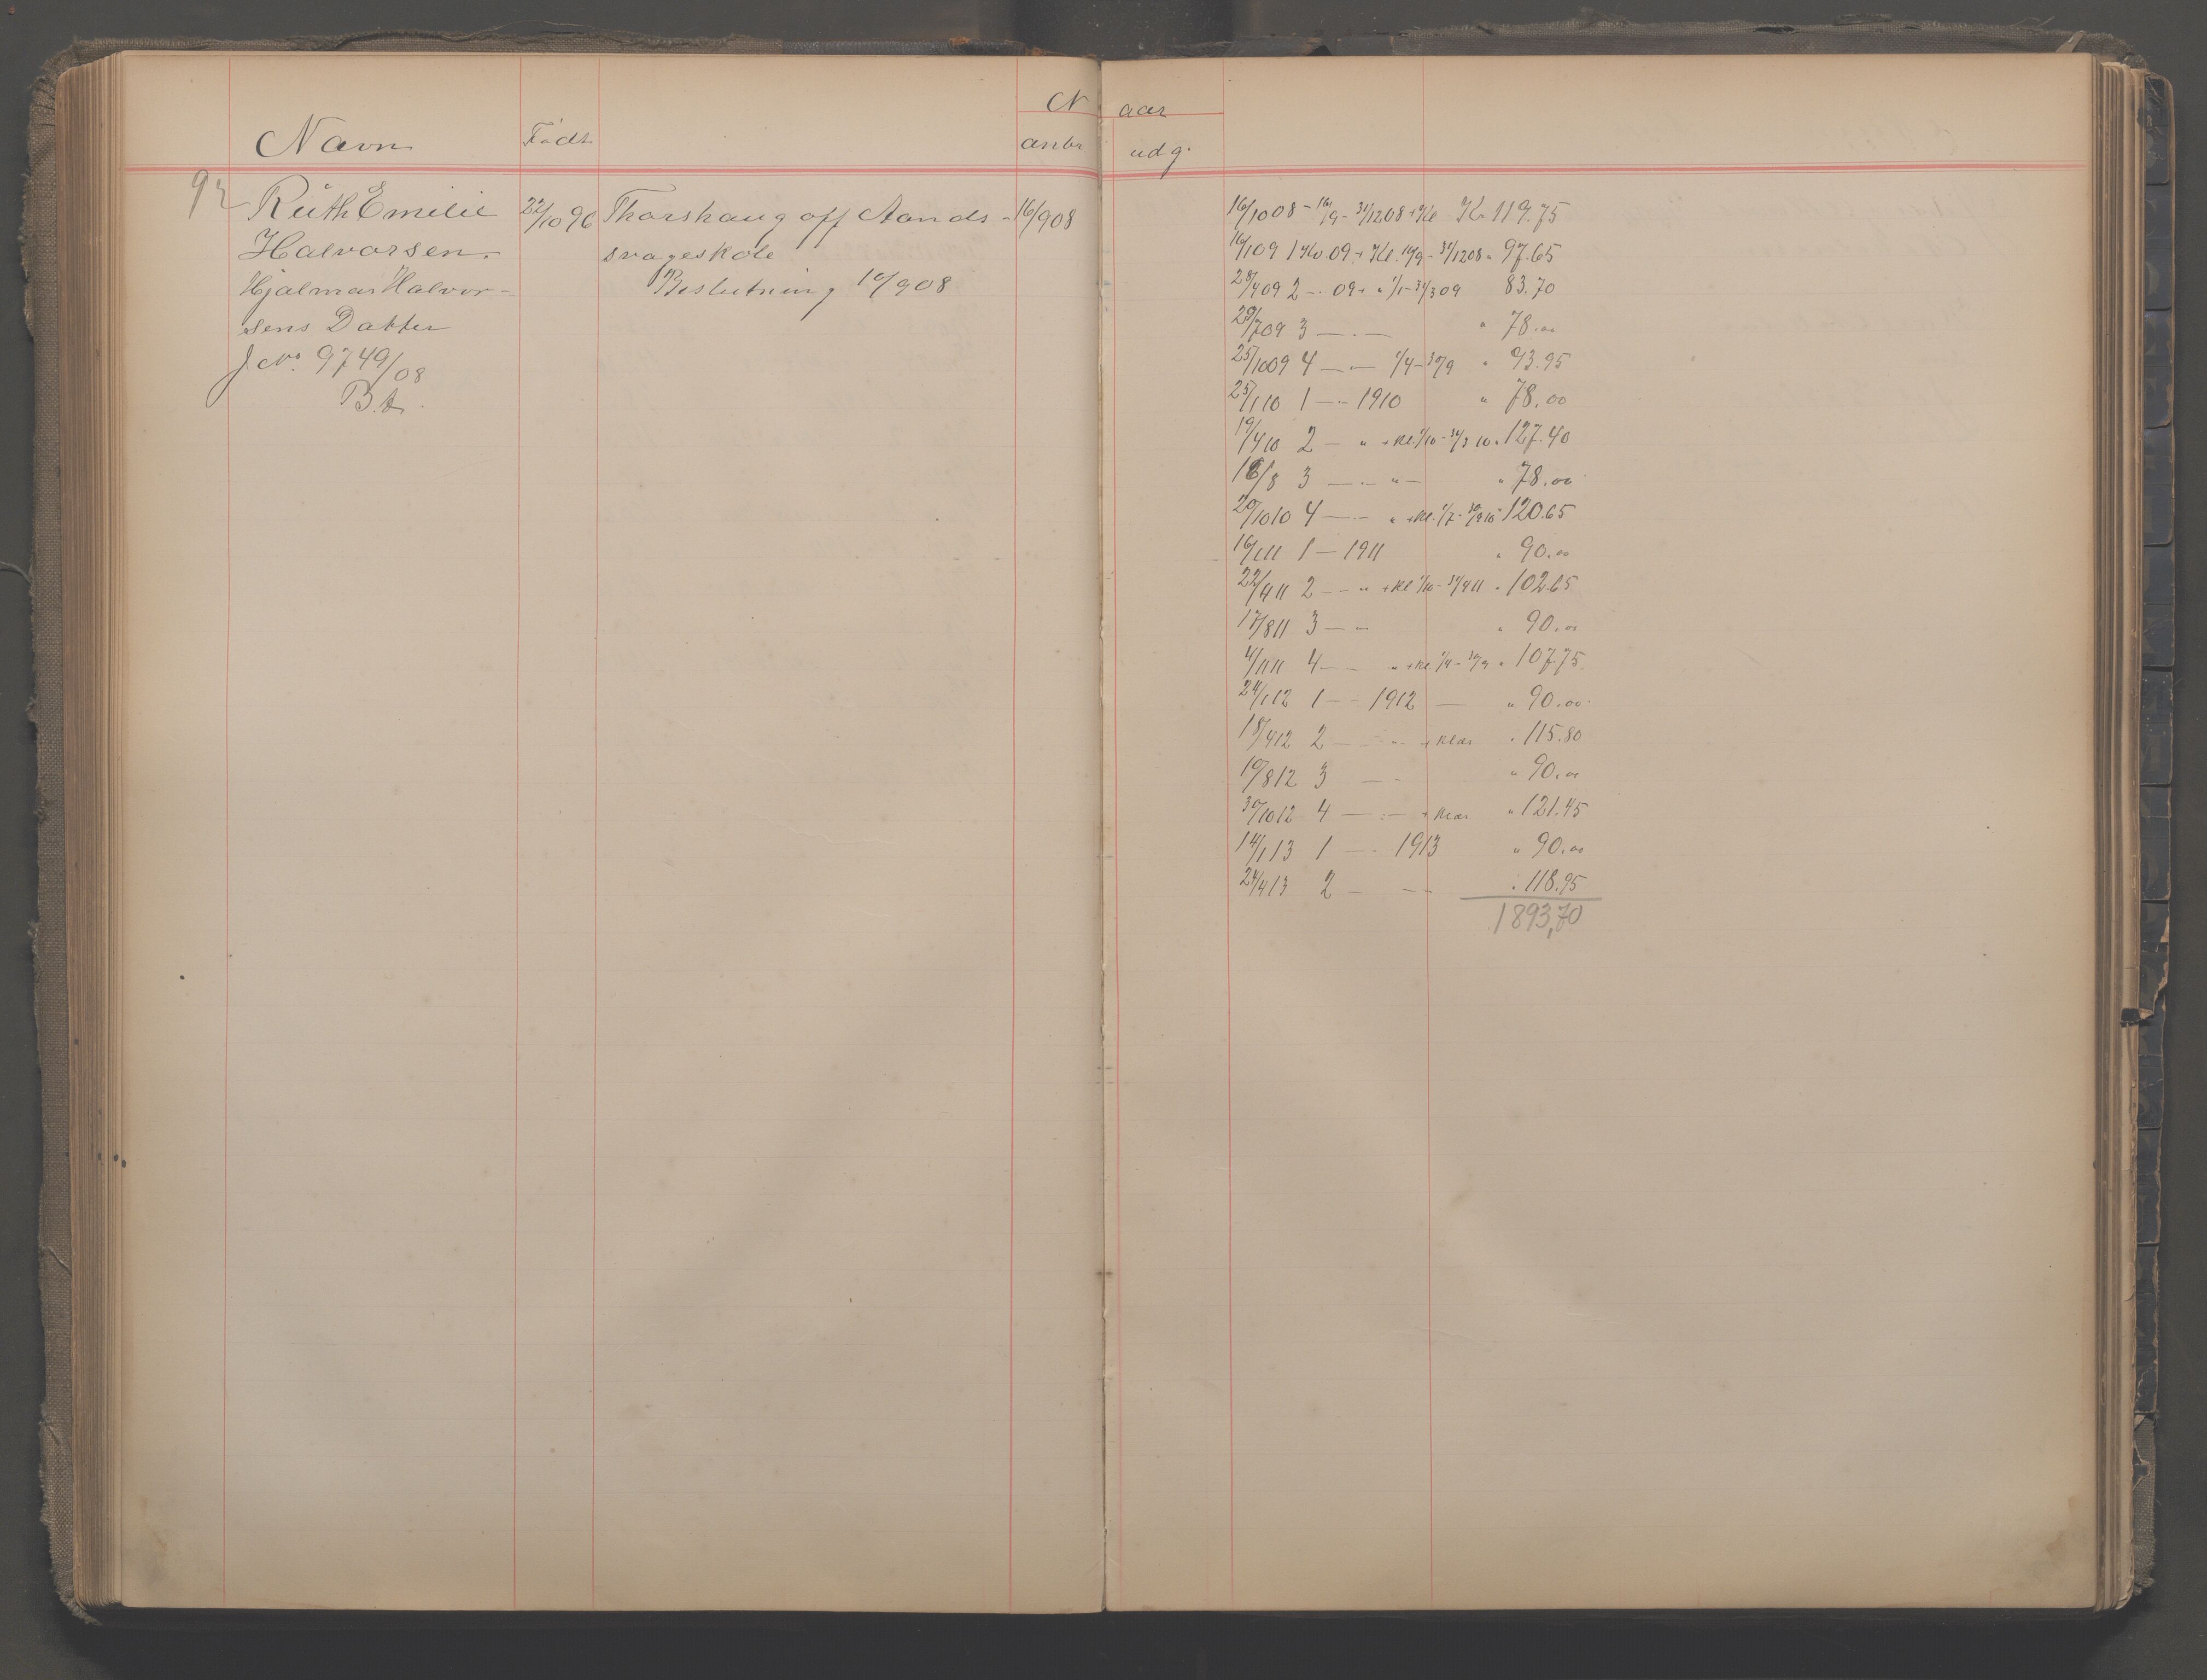 N aar
Navn Født anbr udg.
92 Ruth Emilie 22/10 96 Thorshaug off Aands- 16/9 08
Halvorsen. svageskole
Hjalmar Halvor- Beslutning 10/9 08
sens Datter
J No. 9749/08
B.
16/10 08 - 16/9 - 31/12 08 + Kl K. 119.75
16/1 09 1 Kv 09 + Kl. 16/9 - 31/12 08 " 97.65
28/4 09 2 - 09 + " 1/1 - 31/3 09 83.70
29/7 09 3 — . — " 78.00
25/10 09 4 — — 1/4 - 30/9 " 93.95
25/1 10 1 — - 1910 " 78.00
19/4 10 2 — " + Kl. 1/10 - 31/3 10 " 127.40
16/8 3 — . - " — " 78.00
20/10 10 4 — - " + Kl. 1/7 - 30/9 10 " 120.65
16/1 11 1 — 1911 " 90.00
22/4 11 2 - - " + Kl 1/10 - 31/4 11 " 102.65
17/8 11 3 — " " 90.00
4/11 11 4 — - " + Kl 1/4 - 30/9 " 107.75
24/1 12 1 - - 1912 — " 90.00
18/4 12 2 — - " + Klær " 115.80
19/8 12 3 — - " 90.00
30/10 12 4 — . — + Klær " 121.45
14/1 13 1 — - 1913 " 90.00
24/4 13 2 — - - " 118.95
1893,70